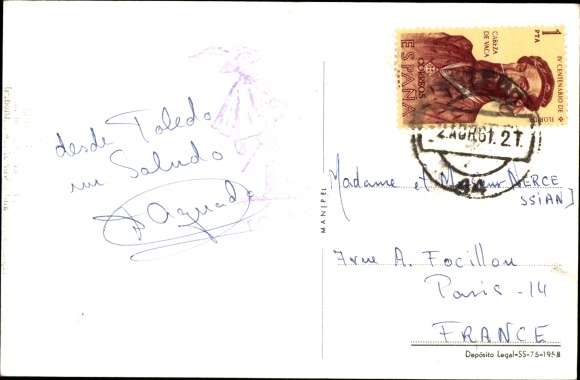 desde Toledo
un Saludo
Aguado
1
PTA
CABEZA
DE VACA
IV CENTENARIO DE
FLORIDA
CORREOS
ESPAÑA
2.AGR61.21
MANIPEL
Madame et Monsieur NERCE
SSIAN
7 rue A. Focillon
Paris-14
FRANCE
Depósito Legal-SS-75-1958